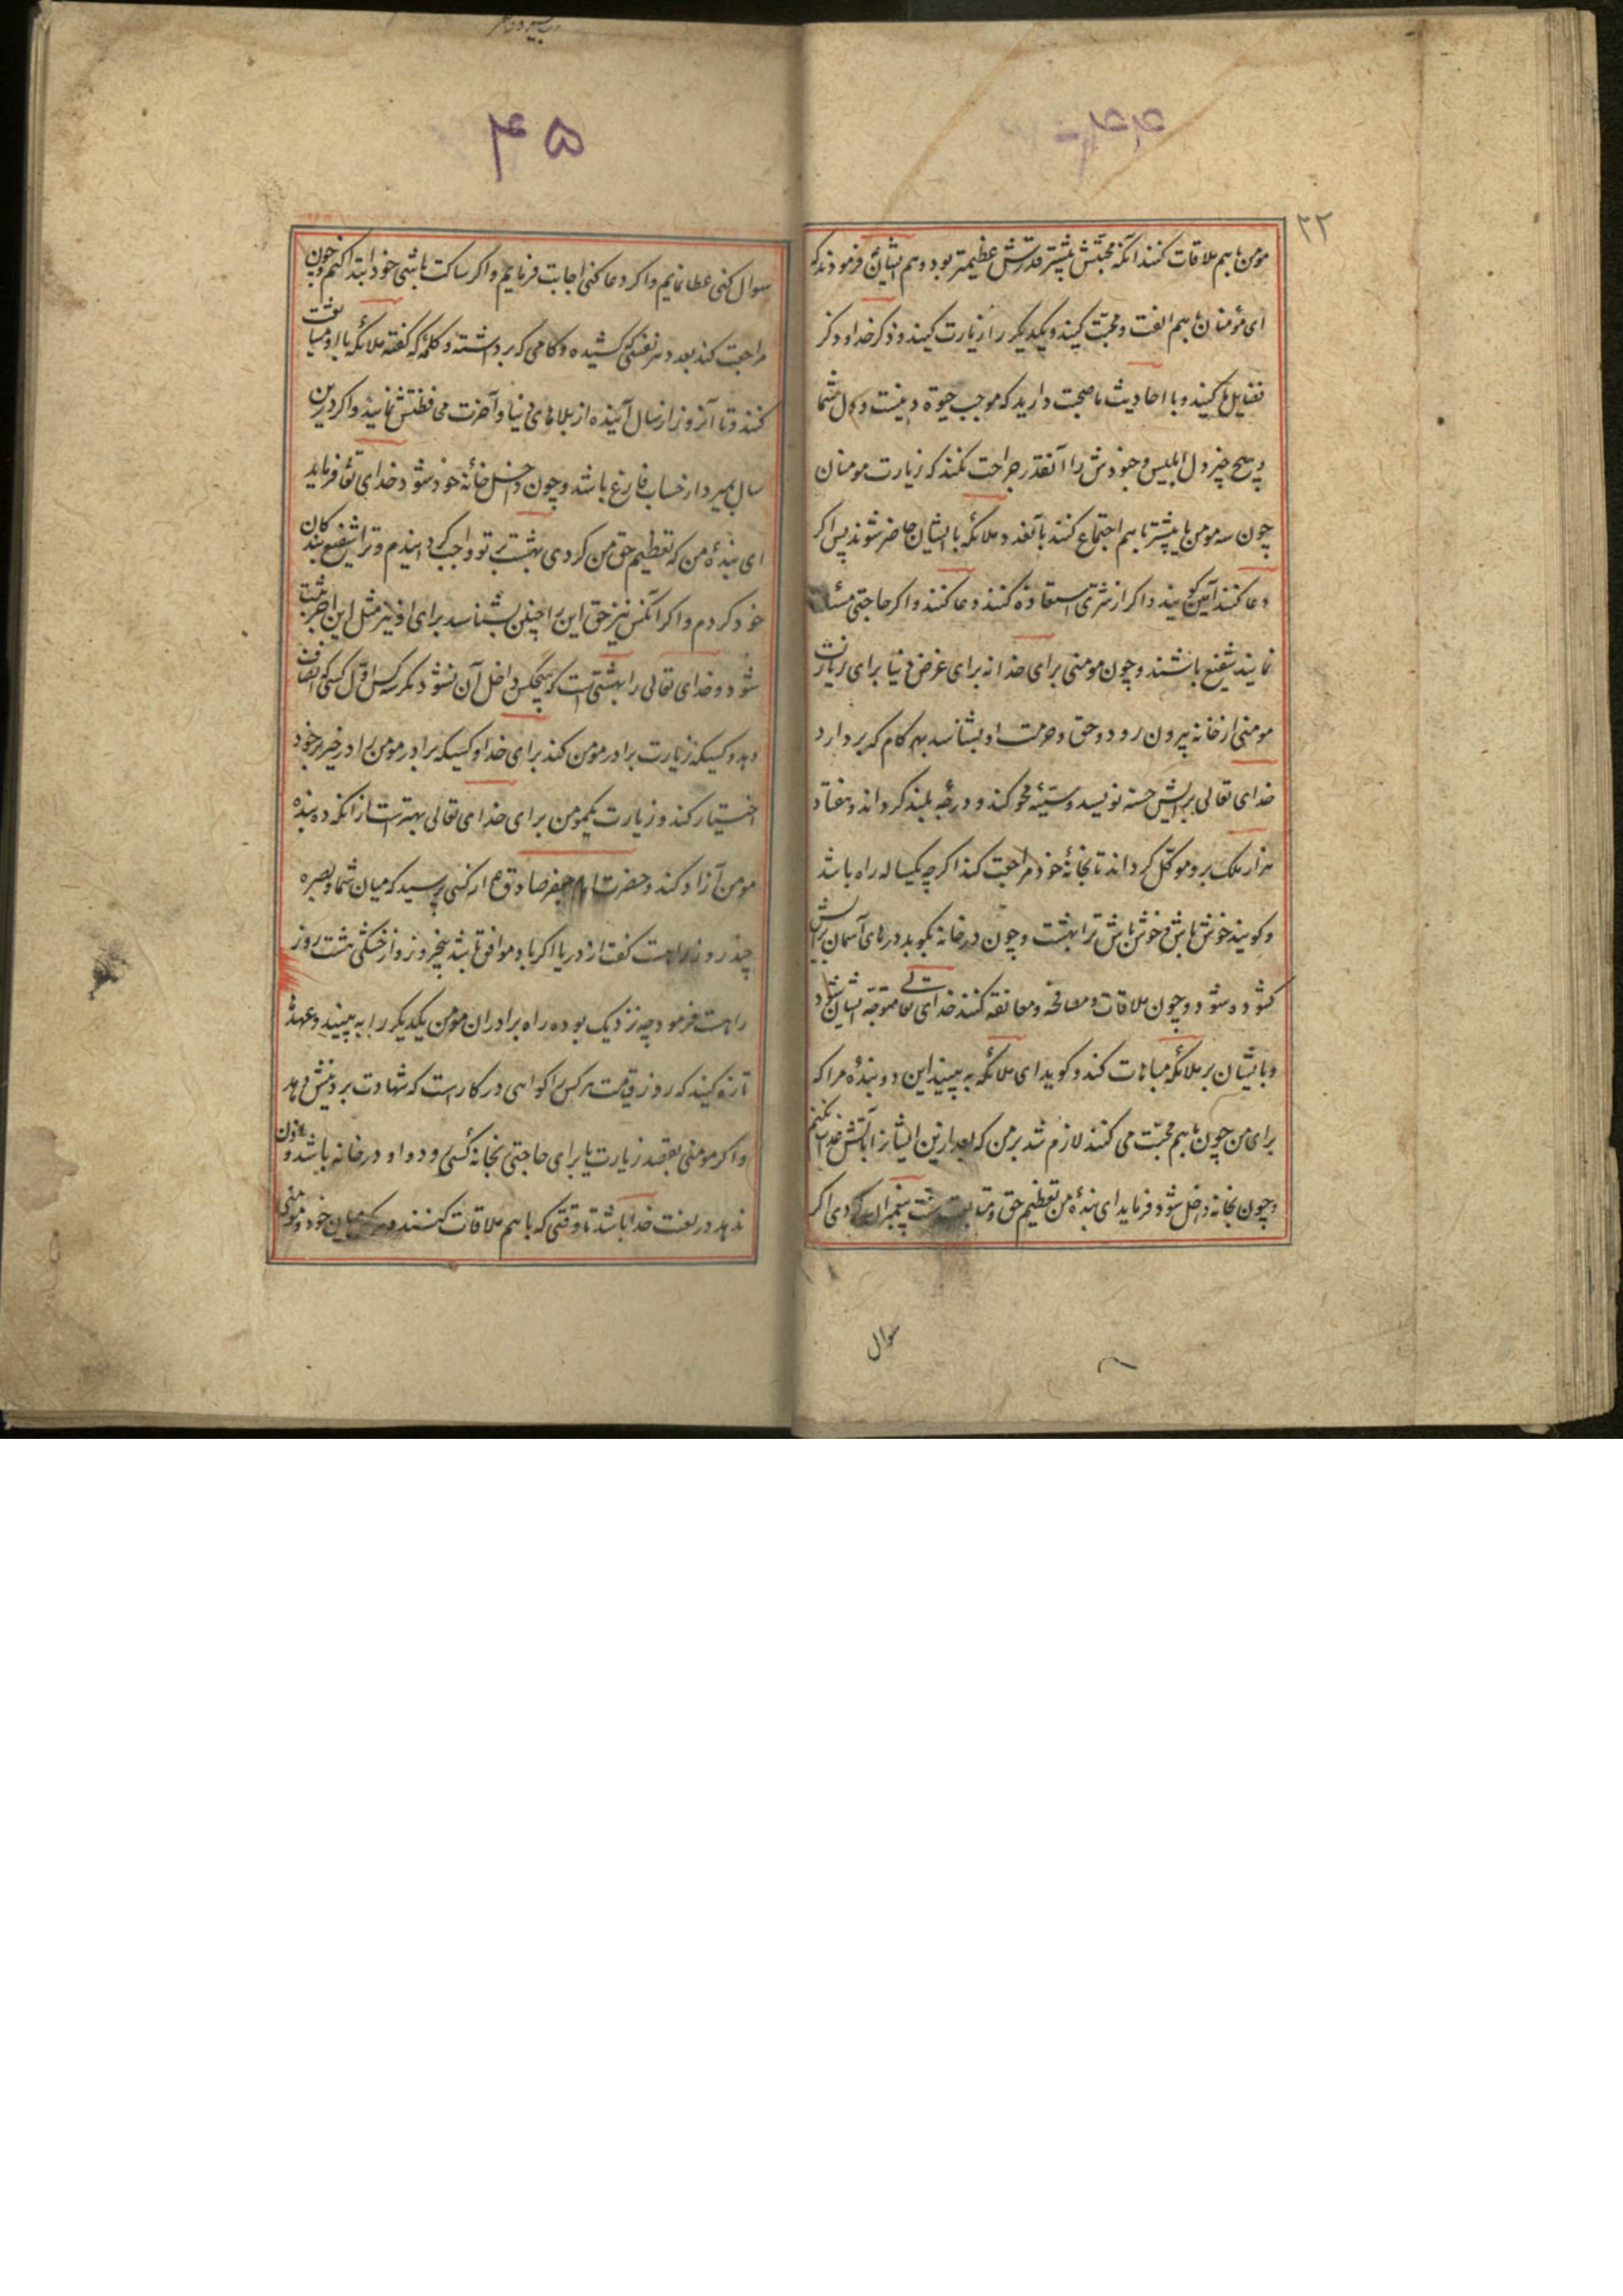 ۴۴
۲۲
مومن باهم ملاقات کنند آنکه محبتش بیشتر قدرتش عظیمتر بود و هم ایشان فرمودند که
ای مؤمنان باهم الفت و محبت کنید و یکدیگر را زیارت کنید و ذکر خدا و ذکر
فضایل ما کنید و با احادیث ما صحبت دارید که موجب حیوة دینست و کمال شما
و هیچ چیز دل ابلیس و جنودش را آنقدر جراحت نکند که زیارت مومنان
چون سه مومن یا بیشتر باهم اجتماع کنند بآنعدد ملائکه با ایشان حاضر شوند پس اگر
دعا کنند آمین گویند و اگر از شری استعاذه کنند دعا کنند و اگر حاجتی مسئلت
نمایند شفیع باشند و چون مومنی برای خدا نه برای غرض دنیا برای زیارت
مومنی از خانه بیرون رود و حق و حرمت او بشناسد بهر گام که بردارد
خدای تعالی برایش حسنه نویسد و سیئه محو کند و درجه بلند گرداند و هفتاد
هزار ملک برو موکل گرداند تا بخانهٔ خود مراجعت کند اگرچه یکساله راه باشد
و گویند خوش باش و خوش باش ترا بهشت و چون در خانه بکوبد درهای آسمان برایش
گشوده شود و چون ملاقات و مصافحه و معانقه کنند خدای تعالی متوجه ایشان شود
و بایشان بر ملائکه مباهات کند و گوید ای ملائکه به بینید این دو بندهٔ مرا که
برای من چون باهم محبت می کنند لازم شد بر من که بعد ازین ایشانرا بآتش عذاب نکنم
و چون بخانه داخل شود فرماید ای بندهٔ من تعظیم حق و متابعت سنت پیغمبران کردی اگر
سوال
۴۵
سوال کنی عطا نمایم و اگر دعا کنی اجابت فرمایم و اگر ساکت باشی خود ابتدا کنم و چون
مراجعت کند بعدد هر نفسی که کشیده و گامی که برداشته و کلمه که گفته ملائکه با او مشایعت
کنند و تا آنروز از سال آینده از بلاهای دنیا و آخرت محافظتش نمایند و اگر درین
سال بمیرد از حساب فارغ باشد و چون داخل خانهٔ خود شود خدای تعالی فرماید
ای بندهٔ من که تعظیم حق من کردی بهشت بر تو واجب گردانیدم و ترا شفیع بندگان
خود کردم و اگر آنکس نیز حق این را چنین بشناسد برای او نیز مثل این اجر مثبت
شود و خدای تعالی را بهشتی است که هیچکس داخل آن نشود مگر سه کس اول کسی که انصاف
دهد و کسیکه زیارت برادر مومن کند برای خدا و کسیکه برادر مومن را در خیر بر خود
اختیار کند و زیارت یکمومن برای خدای تعالی بهتر است از آنکه ده بنده
مومن آزاد کند و حضرت امام جعفر صادق ع از کسی پرسید که میان شما و بصره
چند روز راهست گفت از دریا اگر باد موافق باشد پنجروز و از خشکی هشت روز
راهست فرمود چه نزدیک بوده راه برادران مومن یکدیگر را به بینید و عهدها
تازه کنید که روز قیامت هر کس را گواهی در کار است که شهادت بر دینش دهد
و اگر مومنی بقصد زیارت یا برای حاجتی بخانهٔ کسی رود و او در خانه باشد و اذن
ندهد در لعنت خدا باشد تا وقتی که باهم ملاقات کنند و هر که میان خود و مومنی